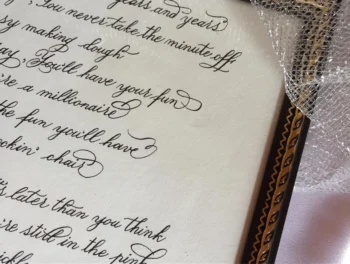 years and years
, You never take the minute off
sy making dough
ay, You'll have your fun
're a millionaire
the fun you'll have
ockin' chair
's later than you think
're still in the pink